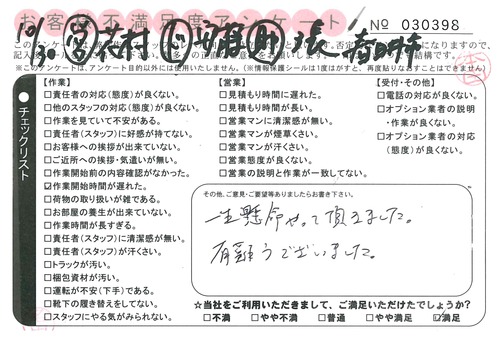 お客様不満足度アンケート
No 030398
10/30
※このアンケートは、アンケート目的以外には使用いたしません。(※情報保護シールは1度はがすと、再度貼りなおすことはできません)
●チェックリスト
【作業】
□責任者の対応(態度)が良くない。
□他のスタッフの対応(態度)が良くない。
□作業を見ていて不安がある。
□責任者(スタッフ)に好感が持てない。
□お客様への挨拶が出来ていない。
□ご近所への挨拶・気遣いが無い。
□作業開始前の内容確認がなかった。
☑作業開始時間が遅れた。
□荷物の取り扱いが雑である。
□お部屋の養生が出来ていない。
□作業時間が長すぎる。
□責任者(スタッフ)に清潔感が無い。
□責任者(スタッフ)が汗くさい。
□トラックが汚い。
□梱包資材が汚い。
□運転が不安(下手)である。
□靴下の履き替えをしてない。
□スタッフにやる気がみられない。
【営業】
□見積もり時間に遅れた。
□見積もり時間が長い。
□営業マンに清潔感が無い。
□営業マンが煙草くさい。
□営業マンが汗くさい。
□営業態度が良くない。
□営業の説明と作業が一致してない。
【受付・その他】
□電話の対応が良くない。
□オプション業者の説明
・作業が良くない。
□オプション業者の対応
(態度)が良くない。
その他、ご意見・ご要望等ありましたらお書き下さい。
一生懸命やって頂きました。
有難うございました。
☆当社をご利用いただきまして、ご満足いただけたでしょうか?
□不満 □やや不満 □普通 □やや満足 ☑満足